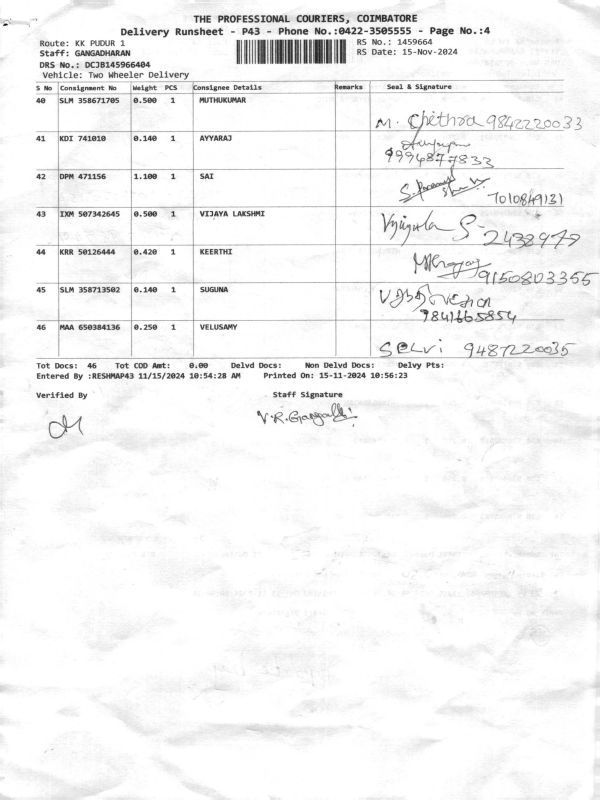 THE PROFESSIONAL COURIERS, COIMBATORE
Delivery Runsheet - P43 - Phone No.:0422-3505555 - Page No.:4
Route: KK PUDUR 1 RS No.: 1459664
Staff: GANGADHARAN RS Date: 15-Nov-2024
DRS No.: DCJB145966404
Vehicle: Two Wheeler Delivery
S No Consignment No Weight PCS Consignee Details Remarks Seal & Signature
40 SLM 358671705 0.500 1 MUTHUKUMAR
M. Chithra 9842220033
41 KDI 741010 0.140 1 AYYARAJ
9994877833
42 DPM 471156 1.100 1 SAI
7010849131
43 IXM 507342645 0.500 1 VIJAYA LAKSHMI
2438979
44 KRR 50126444 0.420 1 KEERTHI
9150803355
45 SLM 358713502 0.140 1 SUGUNA
9841665854
46 MAA 650384136 0.250 1 VELUSAMY
SELVI 9487220035
Tot Docs: 46 Tot COD Amt: 0.00 Delvd Docs: Non Delvd Docs: Delvy Pts:
Entered By :RESHMAP43 11/15/2024 10:54:28 AM Printed On: 15-11-2024 10:56:23
Verified By Staff Signature